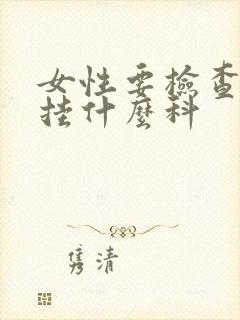 女性要检查
挂什麽科
隽清